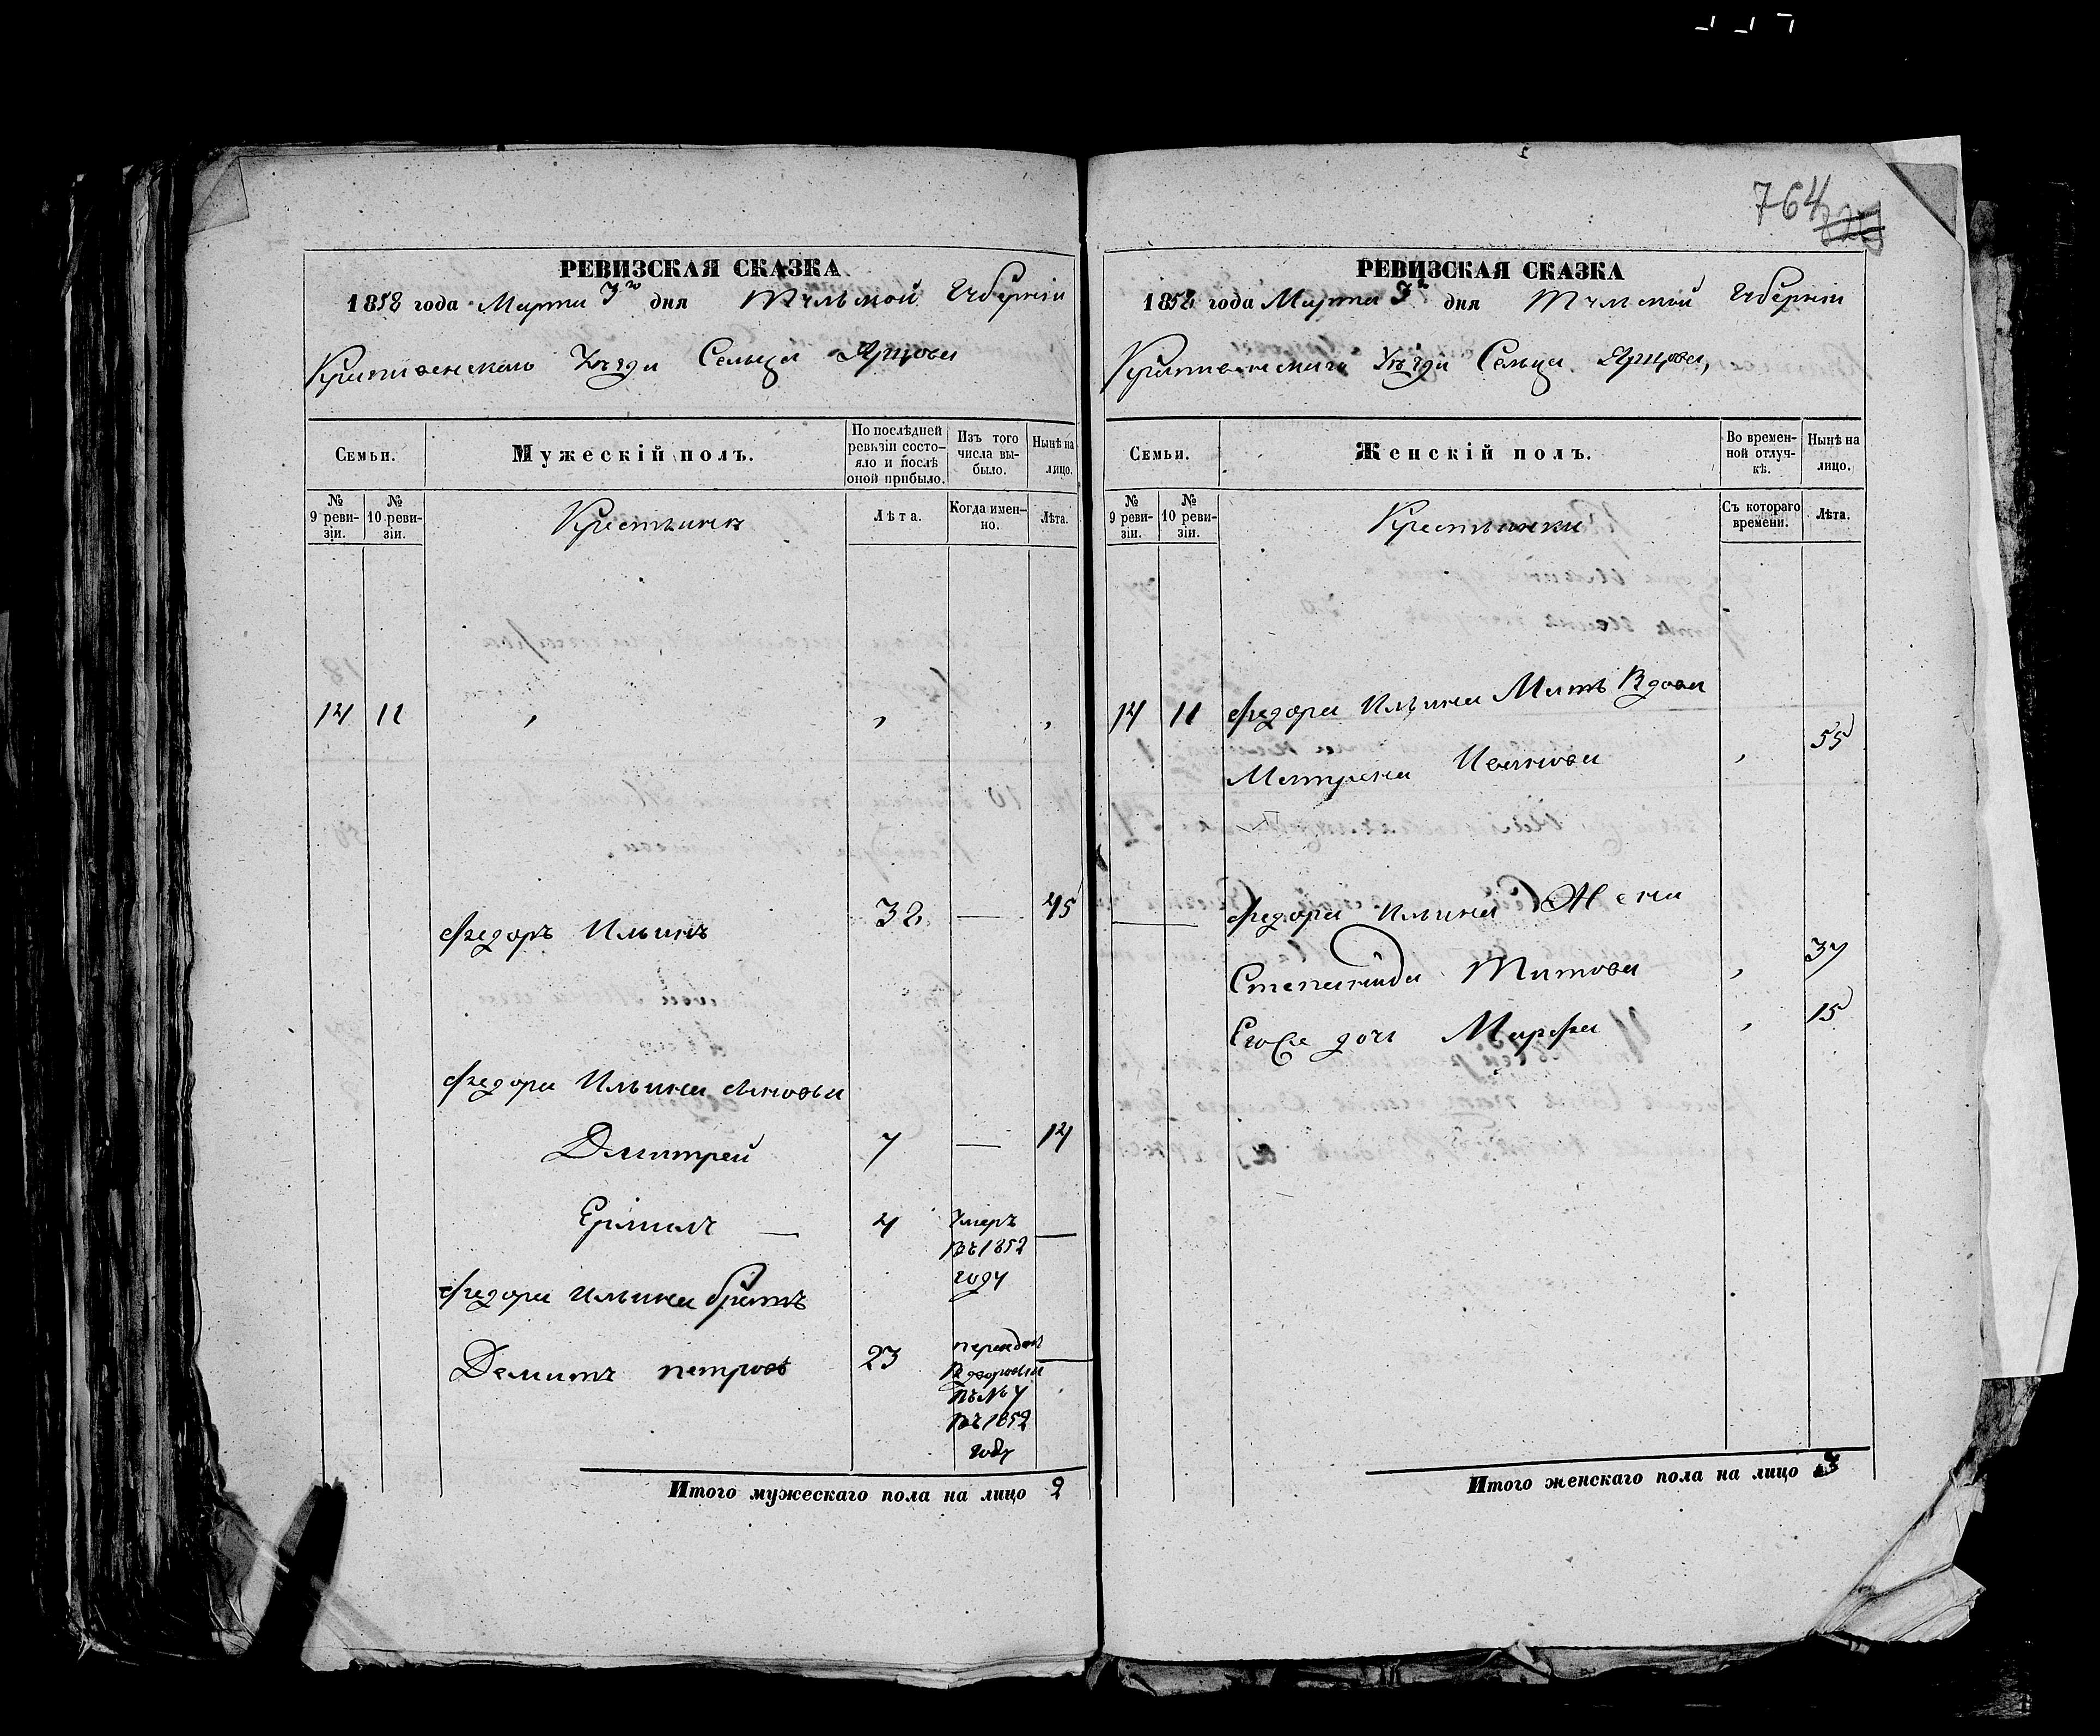 764
РЕВИЗСКАЯ СКАЗКА
1858 года Марта 3го дня Тульской Губерніи
Крапивенскаго Уѣзда Сельца Ярцова
Семьи.
Мужескій полъ.
По послѣдней ревизіи состояло и послѣ оной прибыло.
Изъ того числа выбыло.
Нынѣ на лицо.
№ 9 ревизіи.
№ 10 ревизіи.
Крестьянъ
Лѣта.
Когда именно.
Лѣта.
14 11 , , ,
Федоръ Ильинъ 32 — 45
Федора Ильина сыновья
Дмитрей 7 — 14
Ермилъ — 4 Умеръ —
въ 1852
году
Федора Ильина братъ
Демитъ петровъ 23 —
въ № 4
въ 1852
году
Итого мужескаго пола на лицо 2
РЕВИЗСКАЯ СКАЗКА
1858 года Марта 3го дня Тульской Губерніи
Крапивенскаго Уѣзда Сельца Ярцова,
Семьи.
Женскій полъ.
Во временной отлучкѣ.
Нынѣ на лицо.
№ 9 ревизіи.
№ 10 ревизіи.
Крестьянки
Съ котораго времени.
Лѣта.
14 11 Федора Ильина Мать Вдова
Матрена Иванова , 55
— Федора Ильина Жена
Степанида Титова , 37
Егоже дочь Марфа , 15
Итого женскаго пола на лицо 3